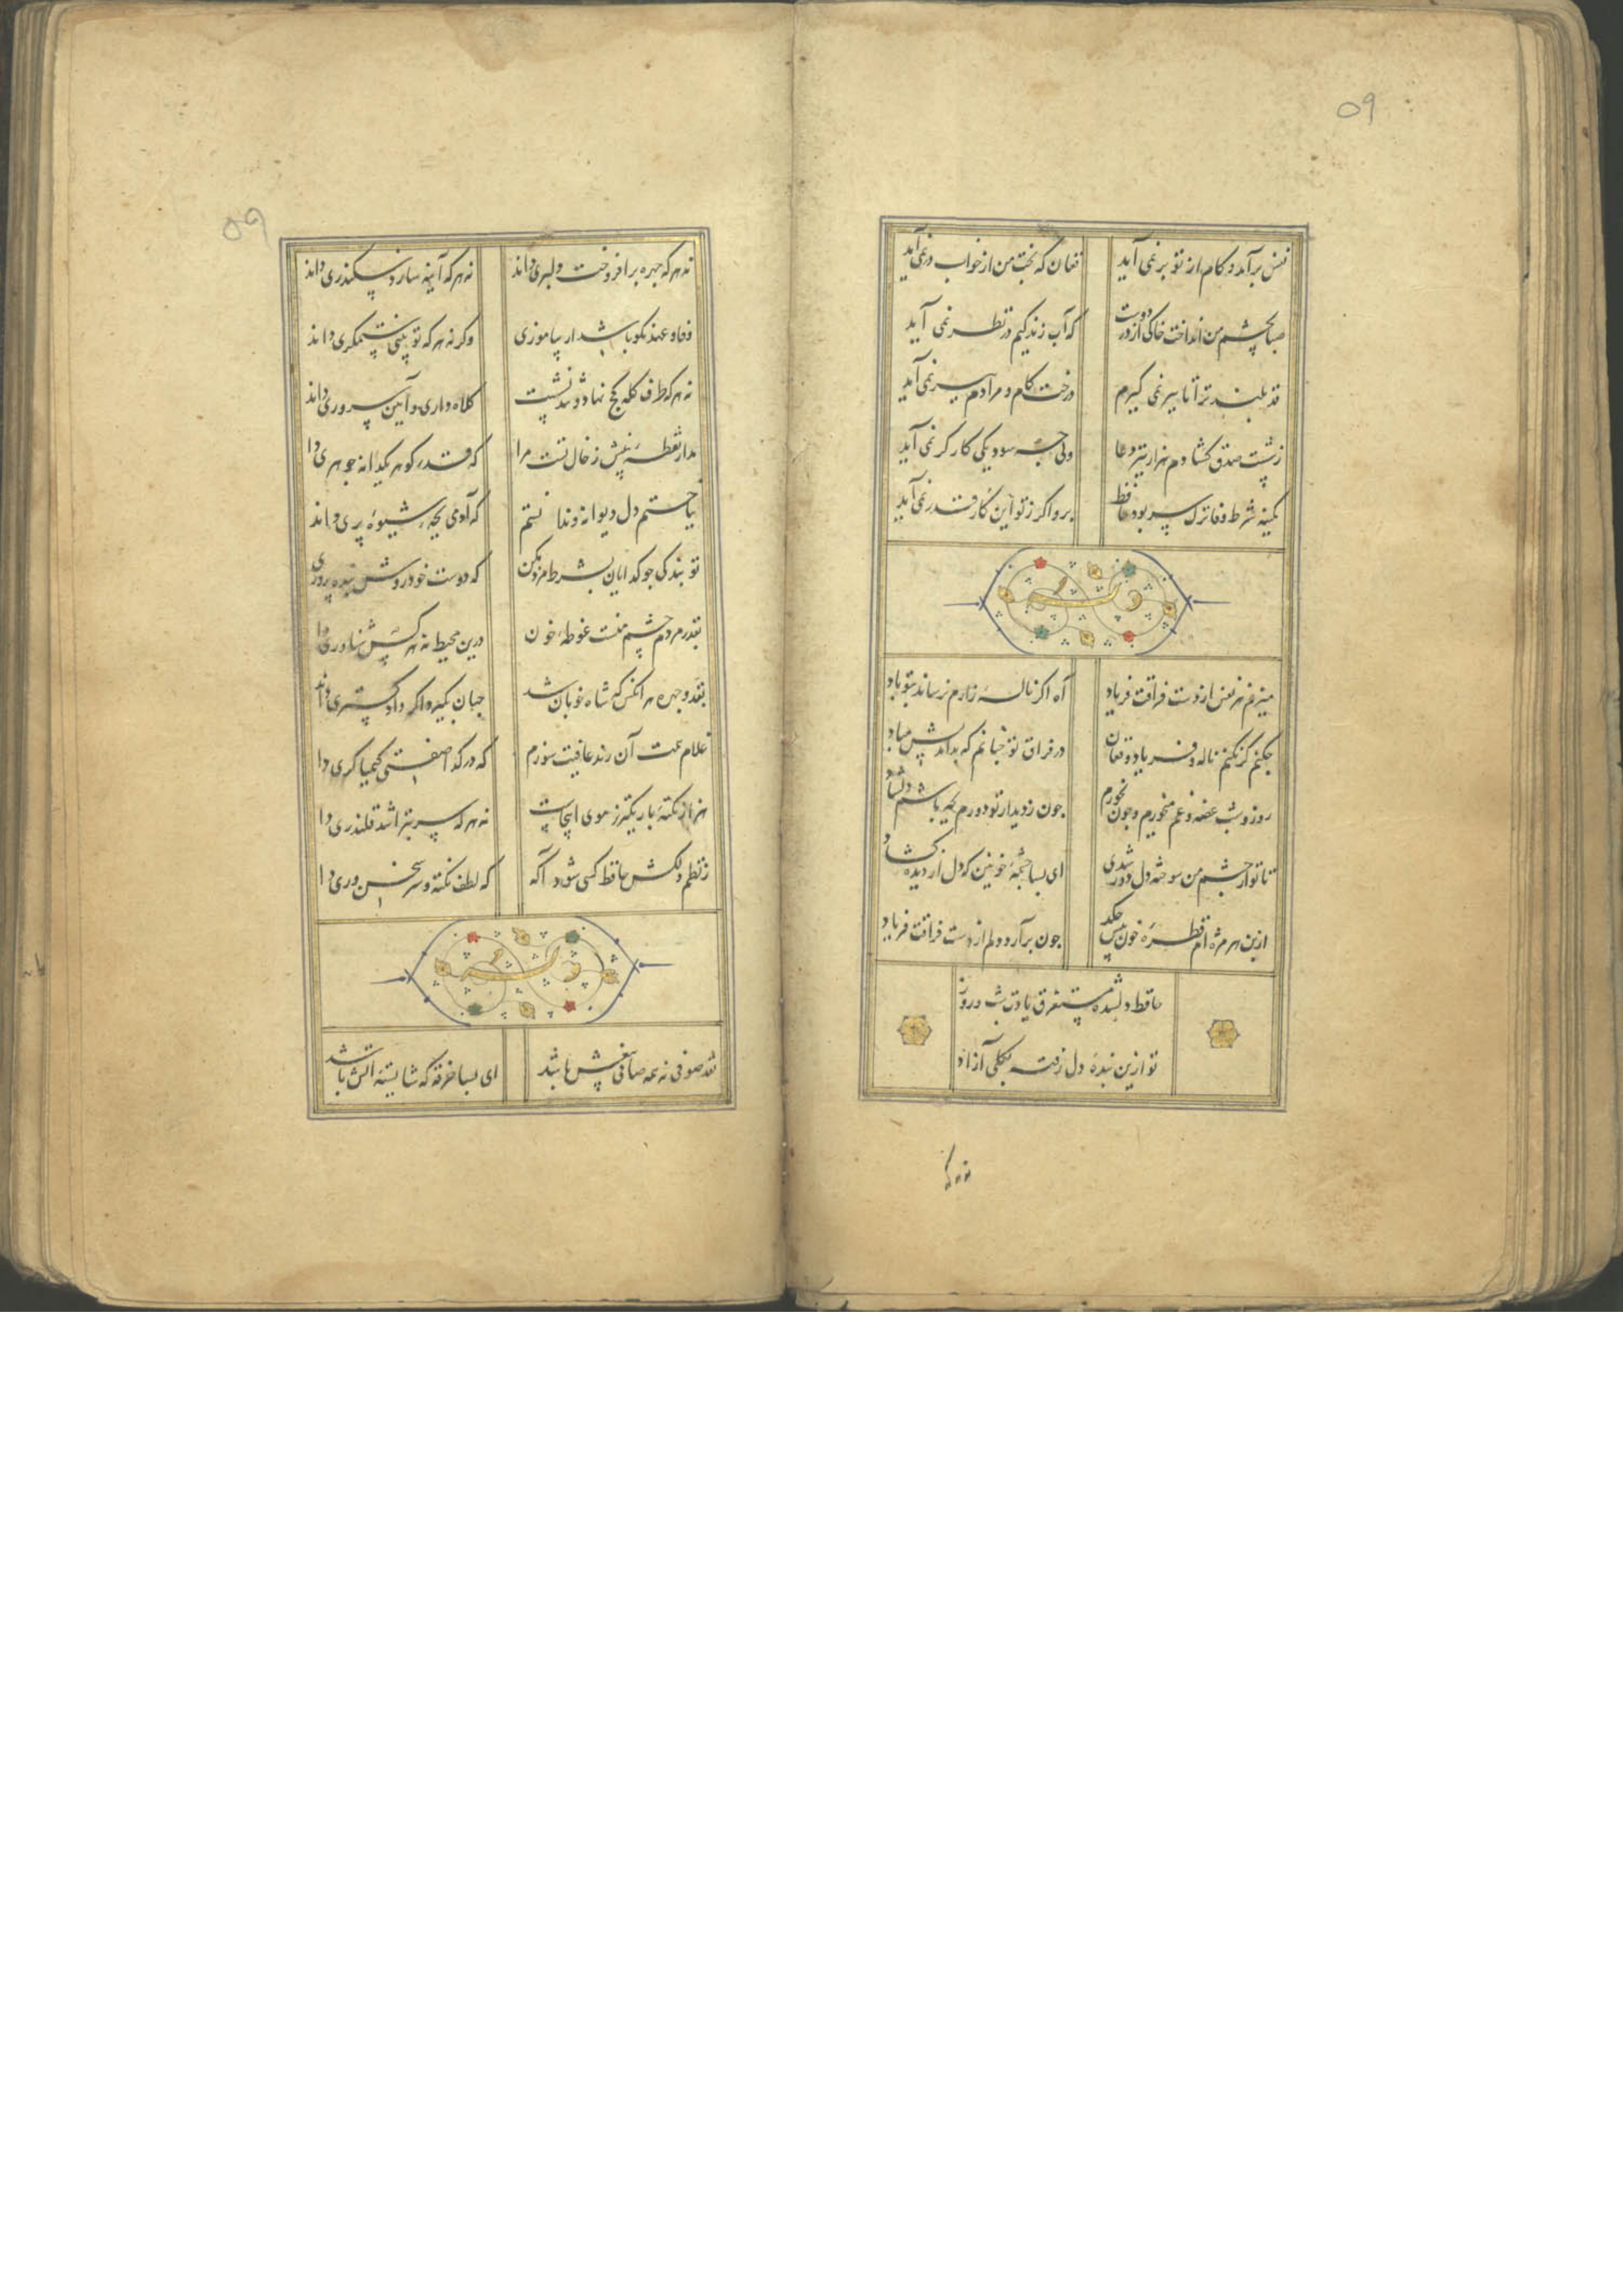 ۵۹
نفس برآمد و کام از تو بر نمی آید
فغان که بخت من از خواب در نمی آید
صبا بچشم من انداخت خاکی از در دوست
که آب زندگیم در نظر نمی آید
قد بلند ترا تا ببر نمی گیرم
درخت کام و مرادم ببر نمی آید
ز شست صدق گشادم هزار تیر دعا
ولی چه سود یکی کارگر نمی آید
کمینه شرط وفا ترک سر بود حافظ
برو اگر ز تو این کار قدر نمی آید
وله
میزنم هر نفس از دست فراقت فریاد
آه اگر ناله زارم نرساند بتو باد
چکنم گر نکنم ناله و فریاد و فغان
در فراق تو چنانم که بداندیش مباد
روز و شب غصه و غم میخورم و چون نخورم
چون ز دیدار تو دورم بچه باشم دلشاد
تا تو از چشم من سوخته دل دور شدی
ای بسا چشمه خونین که دل از دیده گشاد
از بن هر مژه ام قطره خون بیش چکد
چون برآرد دلم از دست فراقت فریاد
حافظ دلشده مستغرق یادت شب و روز
تو ازین بنده دل رفته بکلی آزاد
نه هر که
۵۹
نه هر که چهره برافروخت دلبری داند
نه هر که آینه سازد سکندری داند
وفا و عهد نکو باشد ار بیاموزی
وگرنه هر که تو بینی ستمگری داند
نه هر که طرف کله کج نهاد و تند نشست
کلاه داری و آیین سروری داند
مدار نقطه بینش ز خال تست مرا
که قدر گوهر یکدانه جوهری دا
بباختم دل دیوانه و ندانستم
که آدمی بچه شیوه پری داند
تو بندگی چو گدایان بشرط مزد مکن
که دوست خود روش بنده پروری
بقدر مردم چشم منست غوطه خون
درین محیط نه هر کس شناوری دا
بقد و چهره هر آنکس که شاه خوبان شد
جهان بگیرد اگر دادگستری داند
غلام همت آن رند عافیت سوزم
که در گدا صفتی کیمیاگری دا
هزار نکته باریکتر ز موی اینجاست
نه هر که سر بتراشد قلندری دا
ز نظم دلکش حافظ کسی شود آگه
که لطف نکته و سر سخن وری دا
وله
نقد صوفی نه همه صافی بیغش باشد
ای بسا خرقه که شایسته آتش باشد